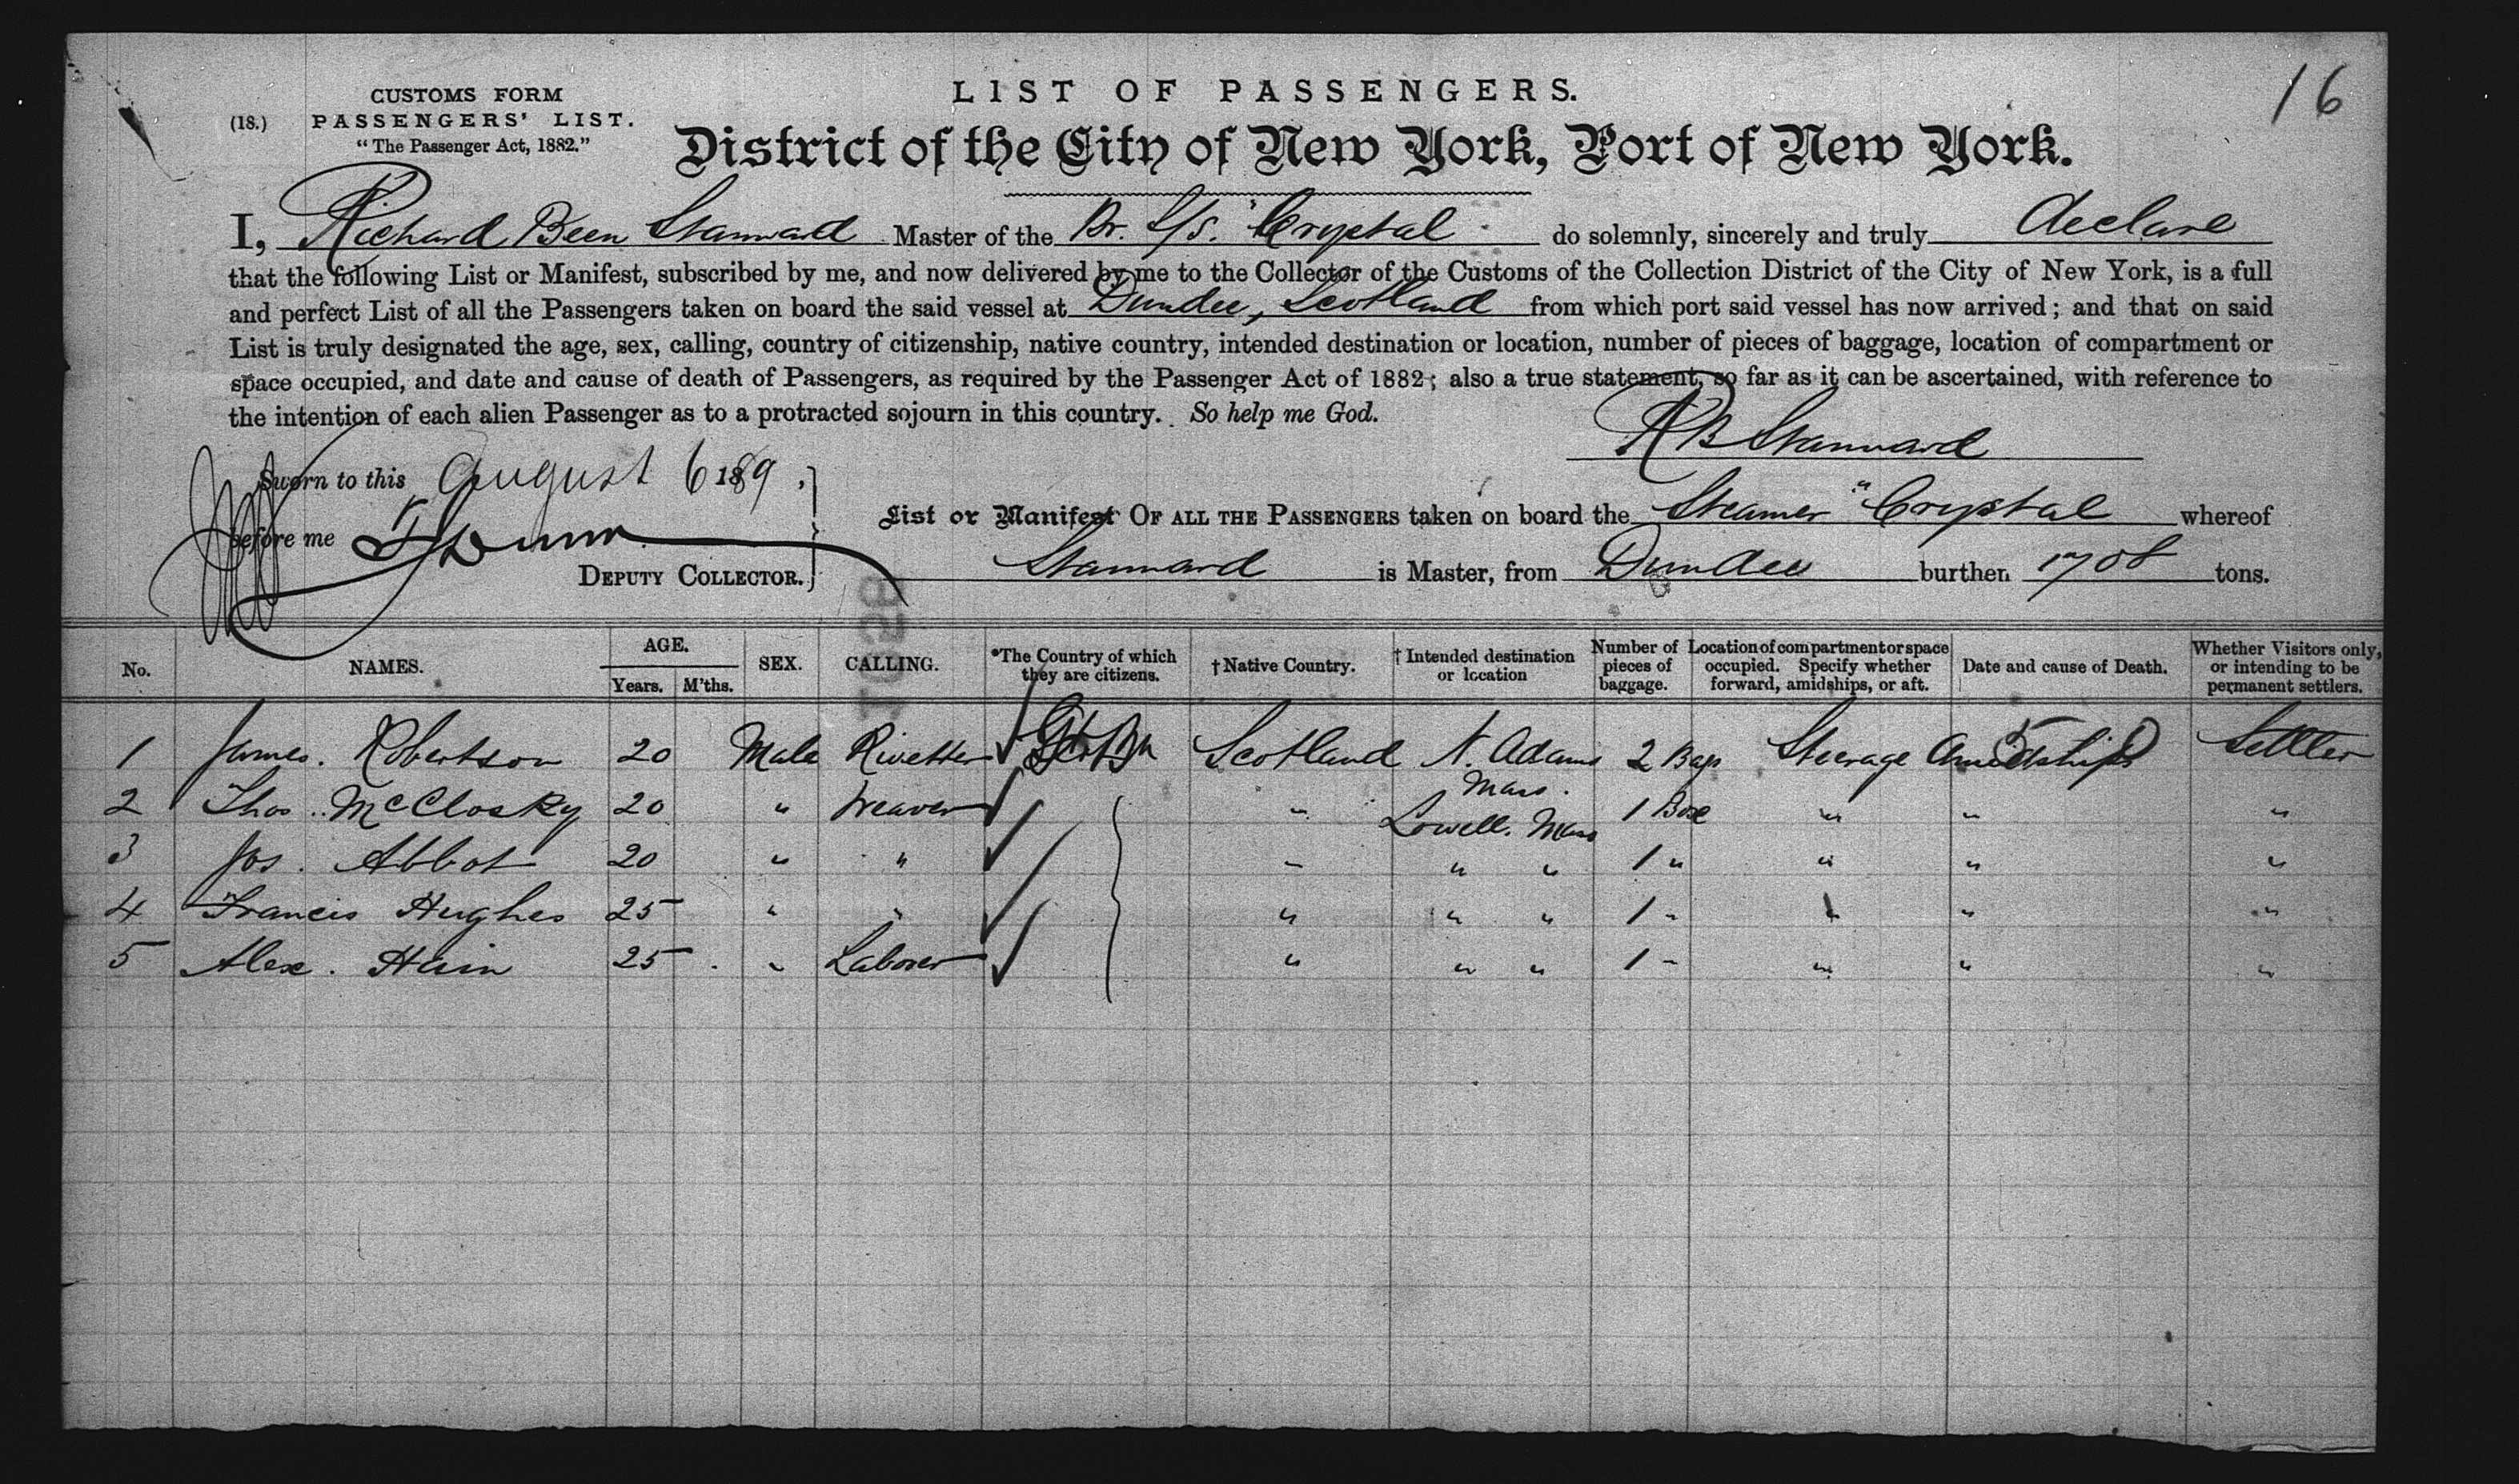 16
LIST OF PASSENGERS.
CUSTOMS FORM
(18.) PASSENGERS' LIST.
"The Passenger Act, 1882."
District of the City of New York, Port of New York.
I, Richard Been Stannard Master of the Br. S/S. "Crystal do solemnly, sincerely and truly declare
that the following List or Manifest, subscribed by me, and now delivered by me to the Collector of the Customs of the Collection District of the City of New York, is a full
and perfect List of all the Passengers taken on board the said vessel at Dundee, Scotland from which port said vessel has now arrived; and that on said
List is truly designated the age, sex, calling, country of citizenship, native country, intended destination or location, number of pieces of baggage, location of compartment or
space occupied, and date and cause of death of Passengers, as required by the Passenger Act of 1882; also a true statement, so far as it can be ascertained, with reference to
the intention of each alien Passenger as to a protracted sojourn in this country. So help me God.
R B Stannard
Sworn to this August 6 189,
before me
DEPUTY COLLECTOR.
List or Manifest OF ALL THE PASSENGERS taken on board the Steamer "Crystal whereof
Stannard is Master, from Dundee burthen 1708 tons.
No. NAMES. AGE. Years. M'ths. SEX. CALLING. *The Country of which they are citizens. †Native Country. †Intended destination or location Number of pieces of baggage. Location of compartment or space occupied. Specify whether forward, amidships, or aft. Date and cause of Death. Whether Visitors only, or intending to be permanent settlers.
1 James. Robertson 20 Male Rivetter Scotland N. Adams Mass. 2 Bags Steerage Amidships Settler
2 Thos. McClosky 20 " Weaver " Lowell. Mass 1 Box " " "
3 Jos. Abbot 20 " " " " " 1 " " " "
4 Francis Hughes 25 " " " " " 1 " " " "
5 Alex. Hain 25 " Laborer " " " 1 " " " "